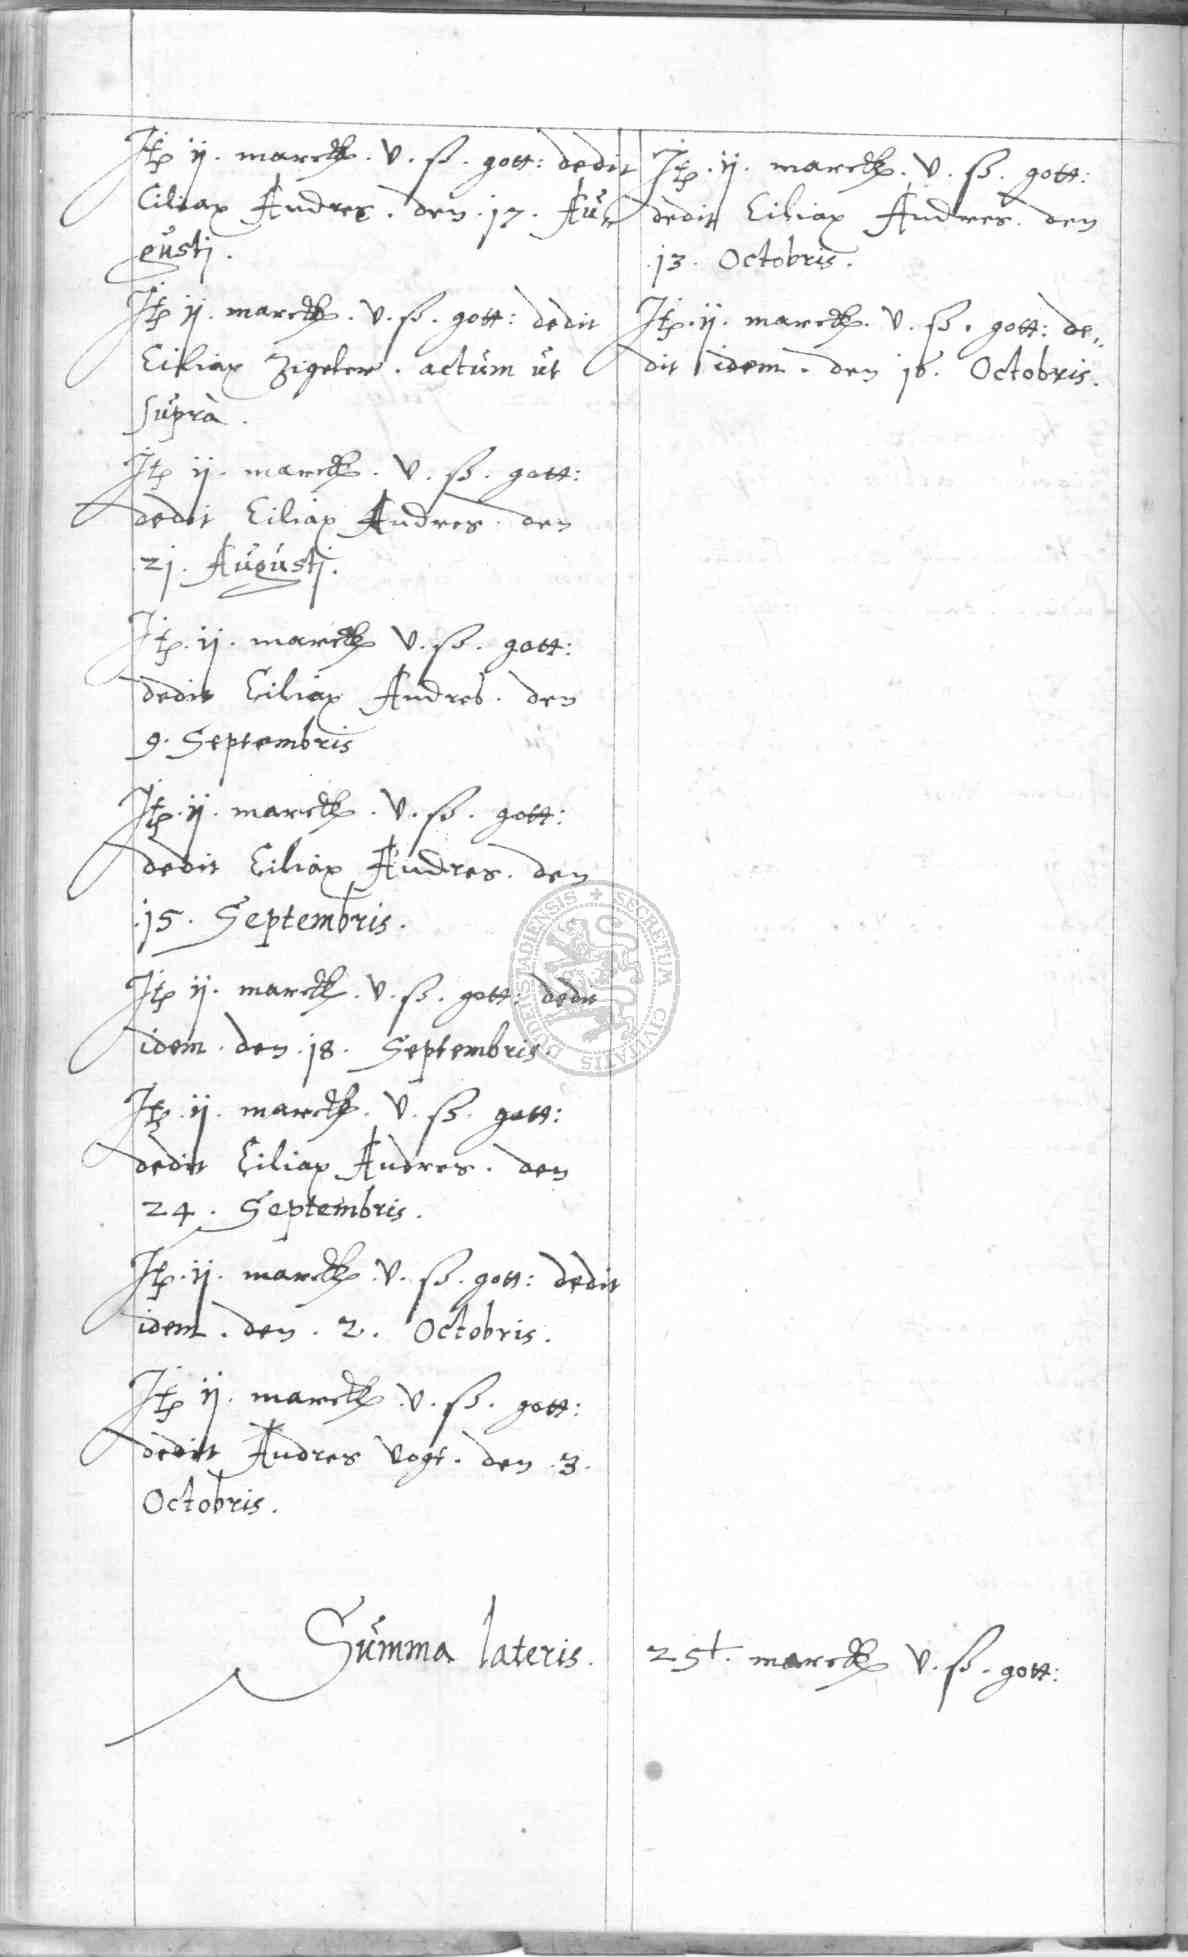 Itp ij. marck. v. ß. gott: dedit
Ciliax Andres. den. 17. Au-
gustj.
Itp ij. marck. v. ß. gott: dedit
Ciliax Zigeler. actum ut
suprà.
Itp ij. marck. v. ß. gott:
dedit Ciliax Andres. den
21. Augustj.
Itp. ij. marck v. ß. gott:
dedit Ciliax Andres. den
9. Septembris
Itp. ij. marck. v. ß. gott:
dedit Ciliax Andres. den
.15. Septembris.
Itp ij. marck. v. ß. gott: dedit
idem. den. 18. Septembris
Itp. ij. marck. v. ß. gott:
dedit Ciliax Andres. den
24. Septembris.
Itp. ij. marck. v. ß. gott: dedit
idem. den. 2. Octobris.
Itp ij. marck v. ß. gott:
dedit Andres Vogt. den .3.
Octobris.
Itp. ij. marck. v. ß. gott:
dedit Ciliax Andres. den
.13. Octobris.
Itp. ij. marck. v. ß. gott: de„
dit idem. den 16. Octobris.
Summa lateris. marck v. ß. gott:
SECRETUM CIVITATIS DUDERSTADIENSIS